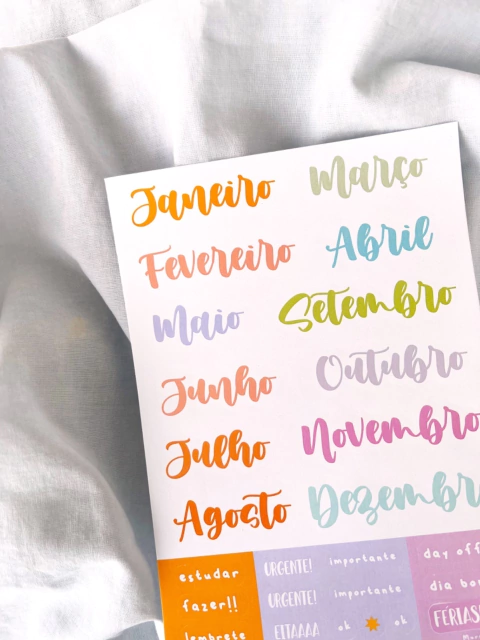 Janeiro
Março
Fevereiro
Abril
Maio
Setembro
Junho
Outubro
Julho
Novembro
Agosto
Dezembr
estudar
URGENTE!
importante
day off
fazer!!
URGENTE!
importante
dia
lembrete
EITAAAA
ok
ok